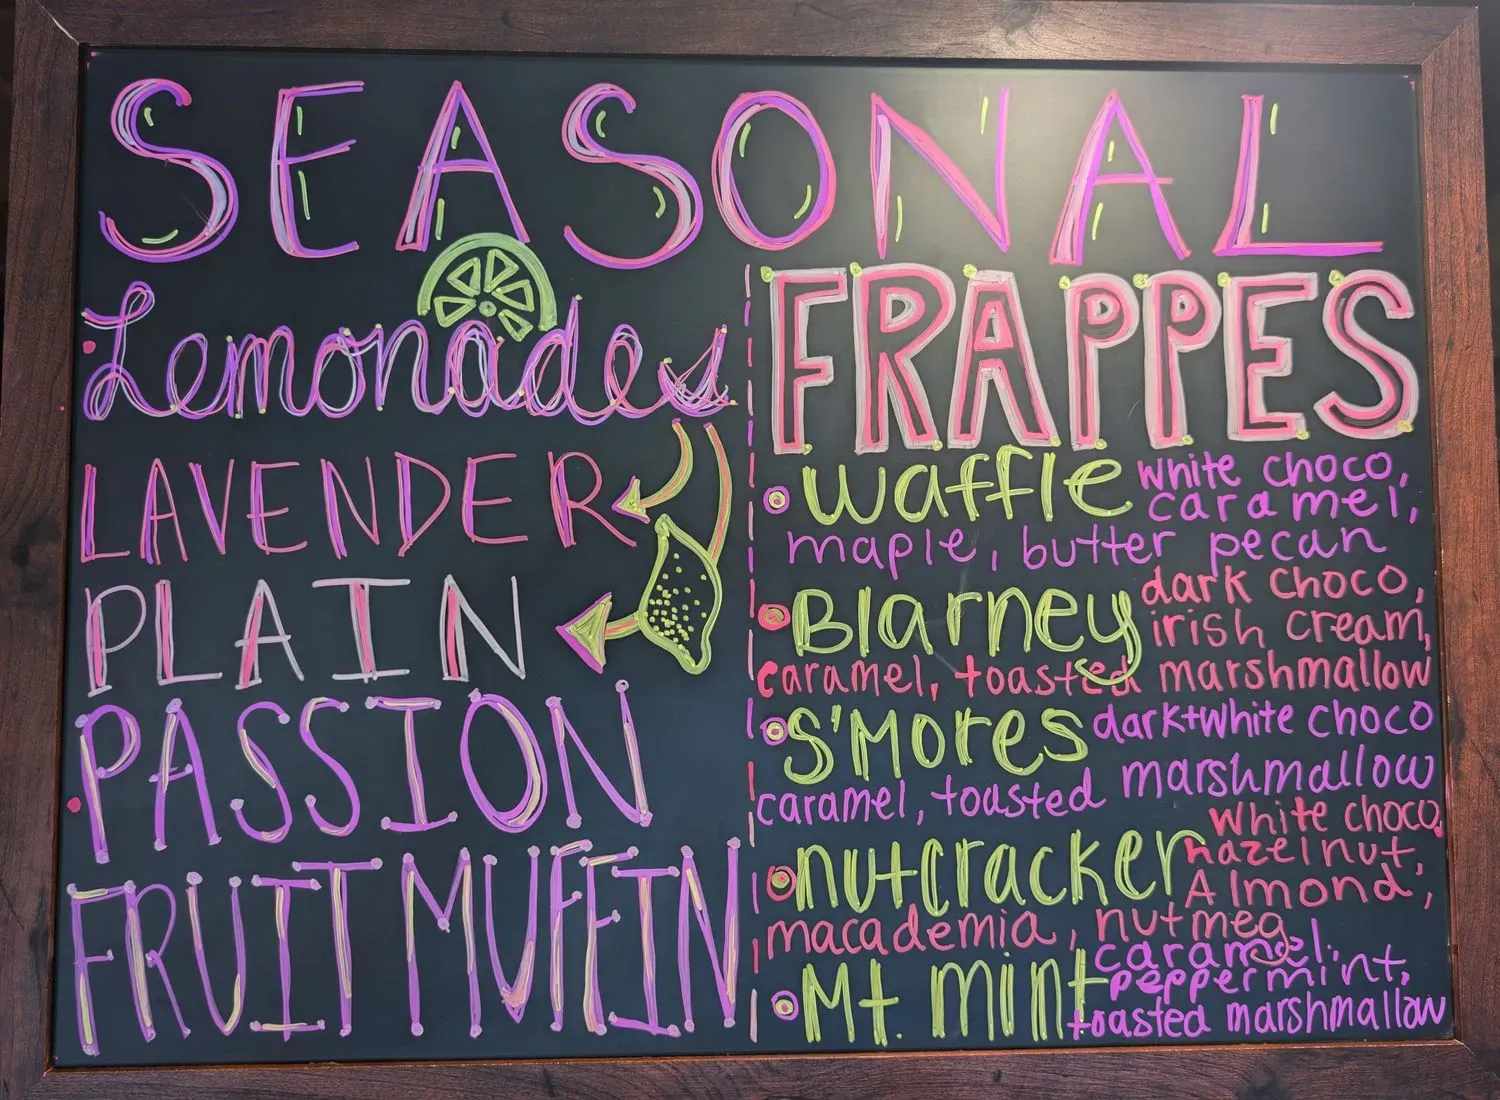 SEASONAL
Lemonades
LAVENDER
PLAIN
PASSION
FRUIT MUFFIN
FRAPPES
Waffle white choco,
caramel,
maple, butter pecan
Blarney dark choco,
irish cream,
caramel, toasted marshmallow
S'Mores dark+white choco
caramel, toasted marshmallow
nutcracker white choco,
hazelnut,
Almond,
macadamia, nutmeg
Mt. mint caramel,
peppermint,
toasted marshmallow